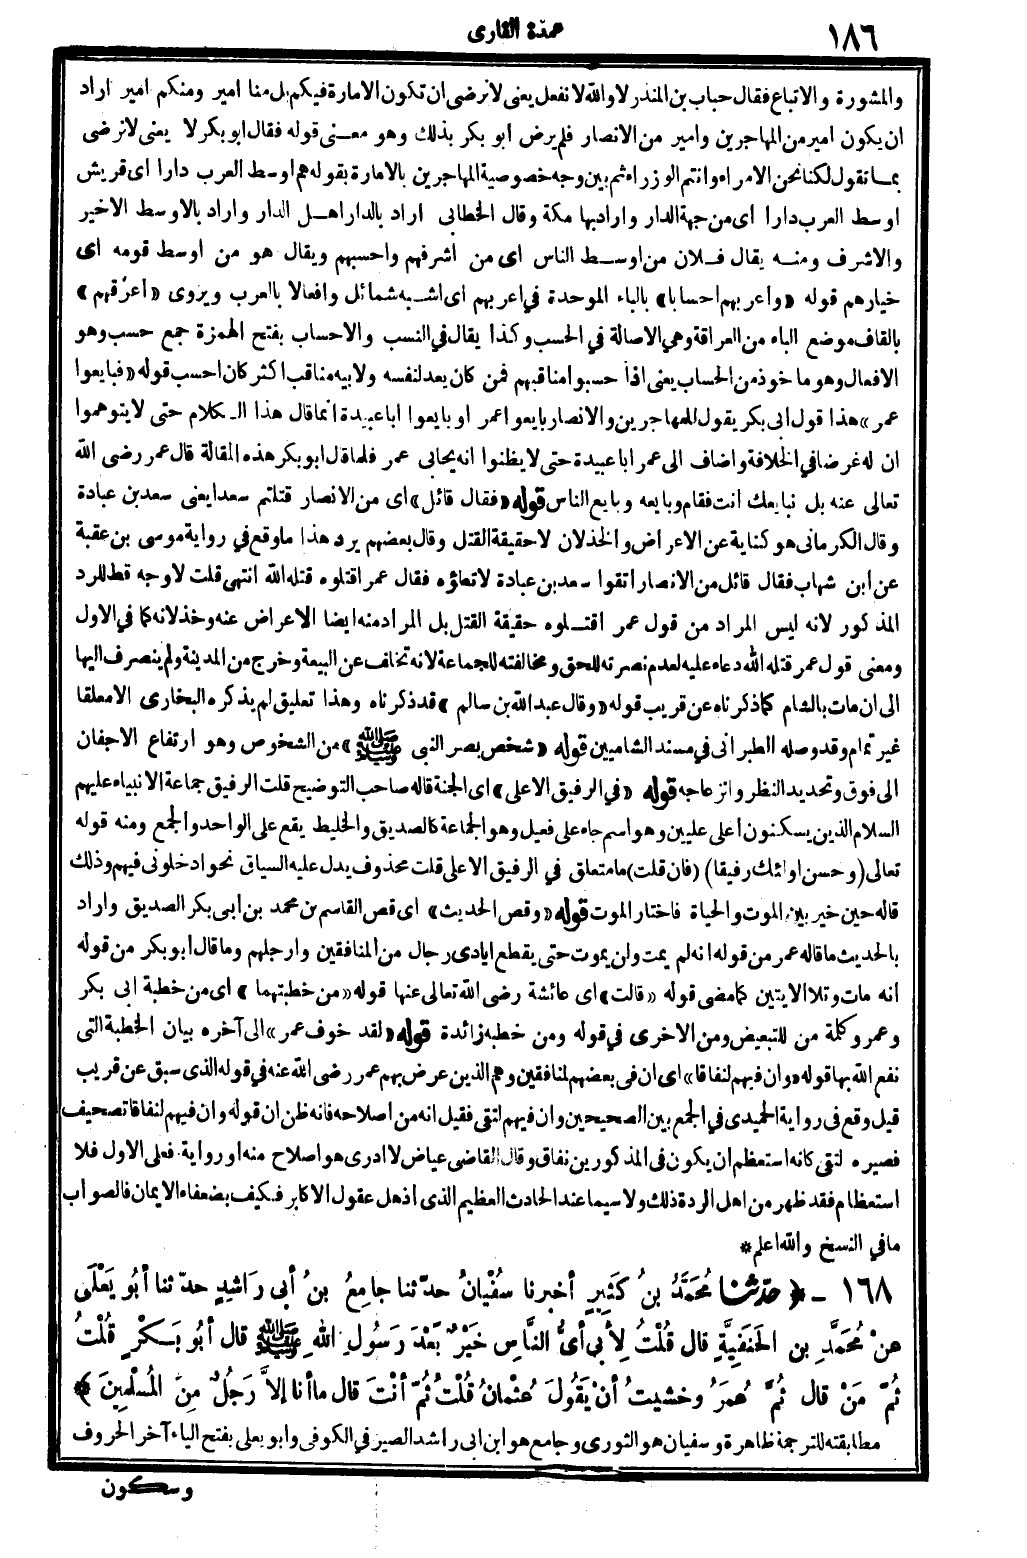 ١٨٦
عمدة القارى
والمشورة والاتباع فقال حباب بن المنذر لا والله لا نفعل يعنى لا نرضى ان تكون الامارة فيكم بل منا امير ومنكم امير اراد
ان يكون امير من المهاجرين وامير من الانصار فلم يرض ابو بكر بذلك وهو معنى قوله فقال ابو بكر لا يعنى لا نرضى
بما نقول لكنا نحن الامراء وانتم الوزراء ثم بين وجه خصوصية المهاجرين بالامارة بقوله هم اوسط العرب دارا اى قريش
اوسط العرب دارا اى من جهة الدار واراد بها مكة وقال الخطابى اراد بالدار اهل الدار واراد بالاوسط الاخير
والاشرف ومنه يقال فلان من اوسط الناس اى من اشرفهم واحسبهم ويقال هو من اوسط قومه اى
خيارهم قوله «واعربهم احسابا» بالباء الموحدة في اعربهم اى اشبه شمائل وافعالا بالعرب ويروى «اعرقهم»
بالقاف موضع الباء من العراقة وهي الاصالة في الحسب وكذا يقال في النسب والاحساب بفتح الهمزة جمع حسب وهو
الافعال وهو ماخوذ من الحساب يعنى اذا حسبوا مناقبهم فمن كان يعد لنفسه ولابيه مناقب اكثر كان احسب قوله «فبايعوا
عمر» هذا قول ابى بكر يقول للمهاجرين والانصار بايعوا عمر او بايعوا ابا عبيدة انما قال هذا الكلام حتى لا يتوهموا
ان له غرضا في الخلافة واضاف الى عمر ابا عبيدة حتى لا يظنوا انه يحابى عمر فلما قال ابو بكر هذه المقالة قال عمر رضى الله
تعالى عنه بل نبايعك انت فقام وبايعه وبايع الناس قوله «فقال قائل» اى من الانصار قتلتم سعدا يعنى سعد بن عبادة
وقال الكرمانى هو كناية عن الاعراض والخذلان لا حقيقة القتل وقال بعضهم يرد هذا ما وقع في رواية موسى بن عقبة
عن ابن شهاب فقال قائل من الانصار اتقوا سعد بن عبادة لا تطؤه فقال عمر اقتلوه قتله الله انتهى قلت لا وجه قط للرد
المذكور لانه ليس المراد من قول عمر اقتلوه حقيقة القتل بل المراد منه ايضا الاعراض عنه وخذلانه كما في الاول
ومعنى قول عمر قتله الله دعاء عليه لعدم نصرته للحق ومخالفته للجماعة لانه تخلف عن البيعة وخرج من المدينة ولم ينصرف اليها
الى ان مات بالشام كما ذكرناه عن قريب قوله «وقال عبد الله بن سالم» قد ذكرناه وهذا تعليق لم يذكره البخارى الا معلقا
غير تمام وقد وصله الطبرانى في مسند الشاميين قوله «شخص بصر النبى ﷺ» من الشخوص وهو ارتفاع الاجفان
الى فوق وتحديد النظر وانزعاجه قوله «في الرفيق الاعلى» اى الجنة قاله صاحب التوضيح قلت الرفيق جماعة الانبياء عليهم
السلام الذين يسكنون اعلى عليين وهو اسم جاء على فعيل وهو الجماعة كالصديق والخليط يقع على الواحد والجمع ومنه قوله
تعالى (وحسن اولئك رفيقا) (فان قلت) ما متعلق في الرفيق الاعلى قلت محذوف يدل عليه السياق نحو ادخلونى فيهم وذلك
قاله حين خير بين الموت والحياة فاختار الموت قوله «وقص الحديث» اى قص القاسم بن محمد بن ابى بكر الصديق واراد
بالحديث ما قاله عمر من قوله انه لم يمت ولن يموت حتى يقطع ايادى رجال من المنافقين وارجلهم وما قال ابو بكر من قوله
انه مات وتلا الايتين كما مضى قوله «قالت» اى عائشة رضى الله تعالى عنها قوله «من خطبتهما» اى من خطبة ابى بكر
وعمر وكلمة من للتبعيض ومن الاخرى في قوله ومن خطبة زائدة قوله «لقد خوف عمر» الى آخره بيان الخطبة التى
نفع الله بها قوله «وان فيهم لنفاقا» اى ان فى بعضهم لمنافقين وهم الذين عرض بهم عمر رضى الله عنه في قوله الذى سبق عن قريب
قيل وقع فى رواية الحميدى في الجمع بين الصحيحين وان فيهم لتقى فقيل انه من اصلاحه فانه ظن ان قوله وان فيهم لنفاقا تصحيف
فصيره لتقى كانه استعظم ان يكون فى المذكورين نفاق وقال القاضى عياض لا ادرى هو اصلاح منه او رواية فعلى الاول فلا
استعظام فقد ظهر من اهل الردة ذلك ولا سيما عند الحادث العظيم الذى اذهل عقول الاكابر فكيف بضعفاء الايمان فالصواب
ما في النسخ والله اعلم *
١٦٨ - ﴿ حدّثنا مُحَمَّدُ بنُ كَثِيرٍ أخبرنا سُفْيانُ حدّثنا جامِعُ بنُ أبى رَاشِدٍ حدّثنا أبُو يَعْلَى
عنْ مُحَمَّدِ بنِ الحَنَفِيَّةِ قال قُلْتُ لِأبى أىُّ النَّاسِ خَيْرٌ بَعْدَ رَسُولِ اللهِ ﷺ قال أبُو بَكْرٍ قُلْتُ
ثُمَّ مَنْ قال ثُمَّ عُمَرُ وخشيتُ أنْ يَقُولَ عُثْمانُ قُلْتُ ثُمّ أنْتَ قال ما أنا إلاَّ رَجُلٌ مِنَ المُسْلِمِينَ ﴾
مطابقته للترجمة ظاهرة وسفيان هو الثورى وجامع هو ابن ابى راشد الصيرفي الكوفى وابو يعلى بفتح الياء آخر الحروف
وسكون